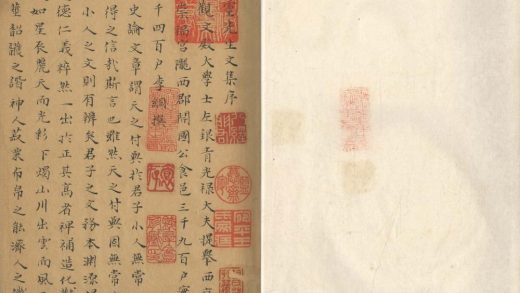 先生文集序
觀文殿大學士左銀青光祿大夫提舉西京
崇福宮隴西郡開國公食邑三千九百戶實
千四百戶李綱撰
史論文章謂天之付與於君子小人無常
得之信哉斯言也雖然天之付與固無常
小人之文則有辨矣君子之文務本淵源
德仁義粹然一出於正其高者裨補造化
如星辰麗天而光彩下燭山川出雲而風
韶濩之諧神人菽粟布帛之能濟人之